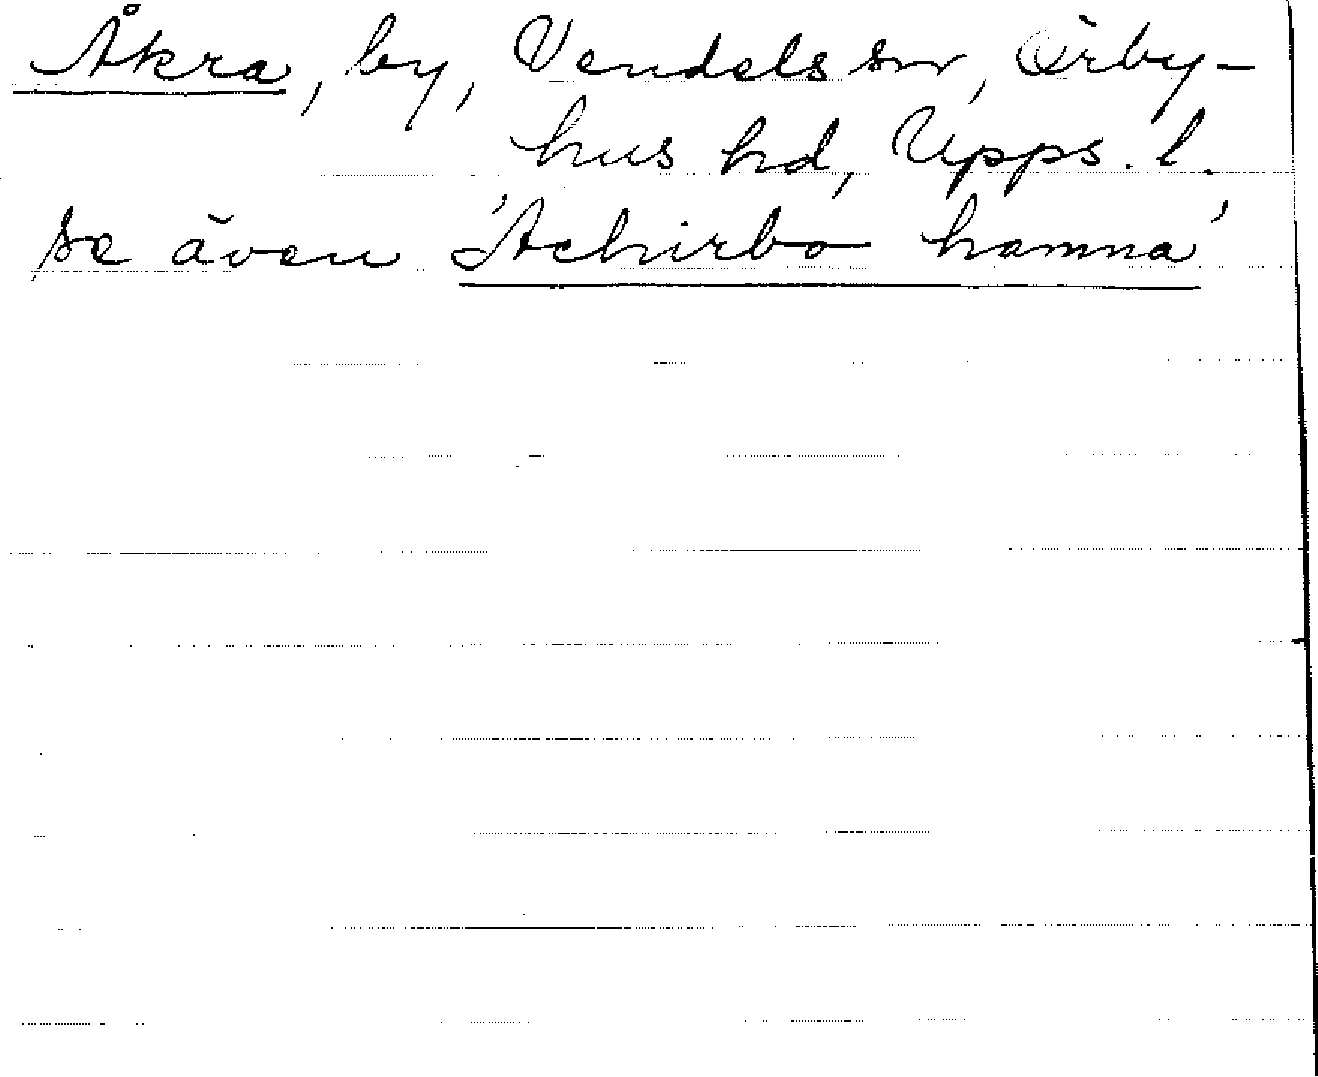 Åkra, by, Vendels sn, Örby-
hus hd, Upps. l.
se även 'Achirbo hamna'